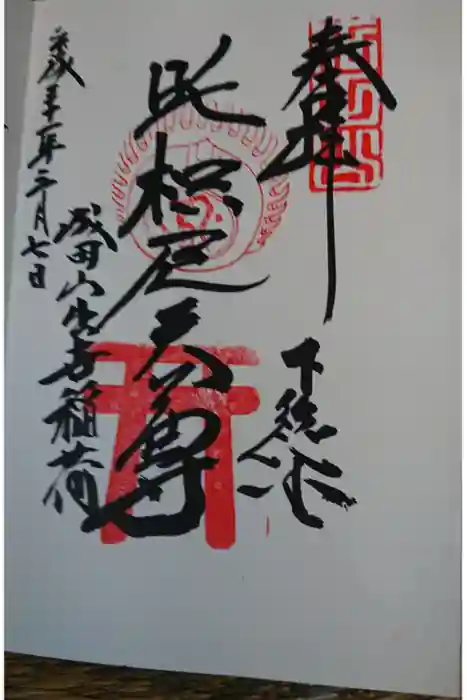 奉拝
下総
吒枳尼天尊
成田山出世稲荷
平成三十一年三月七日